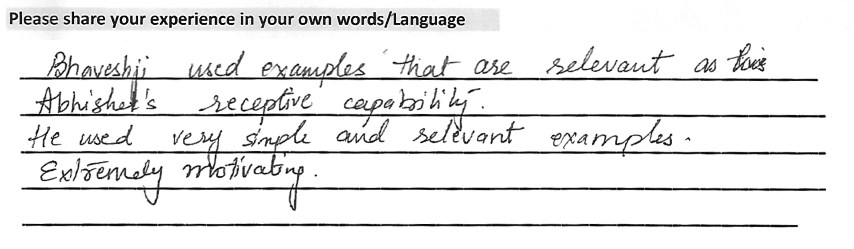 Please share your experience in your own words/Language
Bhaveshji used examples that are relevant as
Abhishek's receptive capability.
He used very simple and relevant examples.
Extremely motivating.